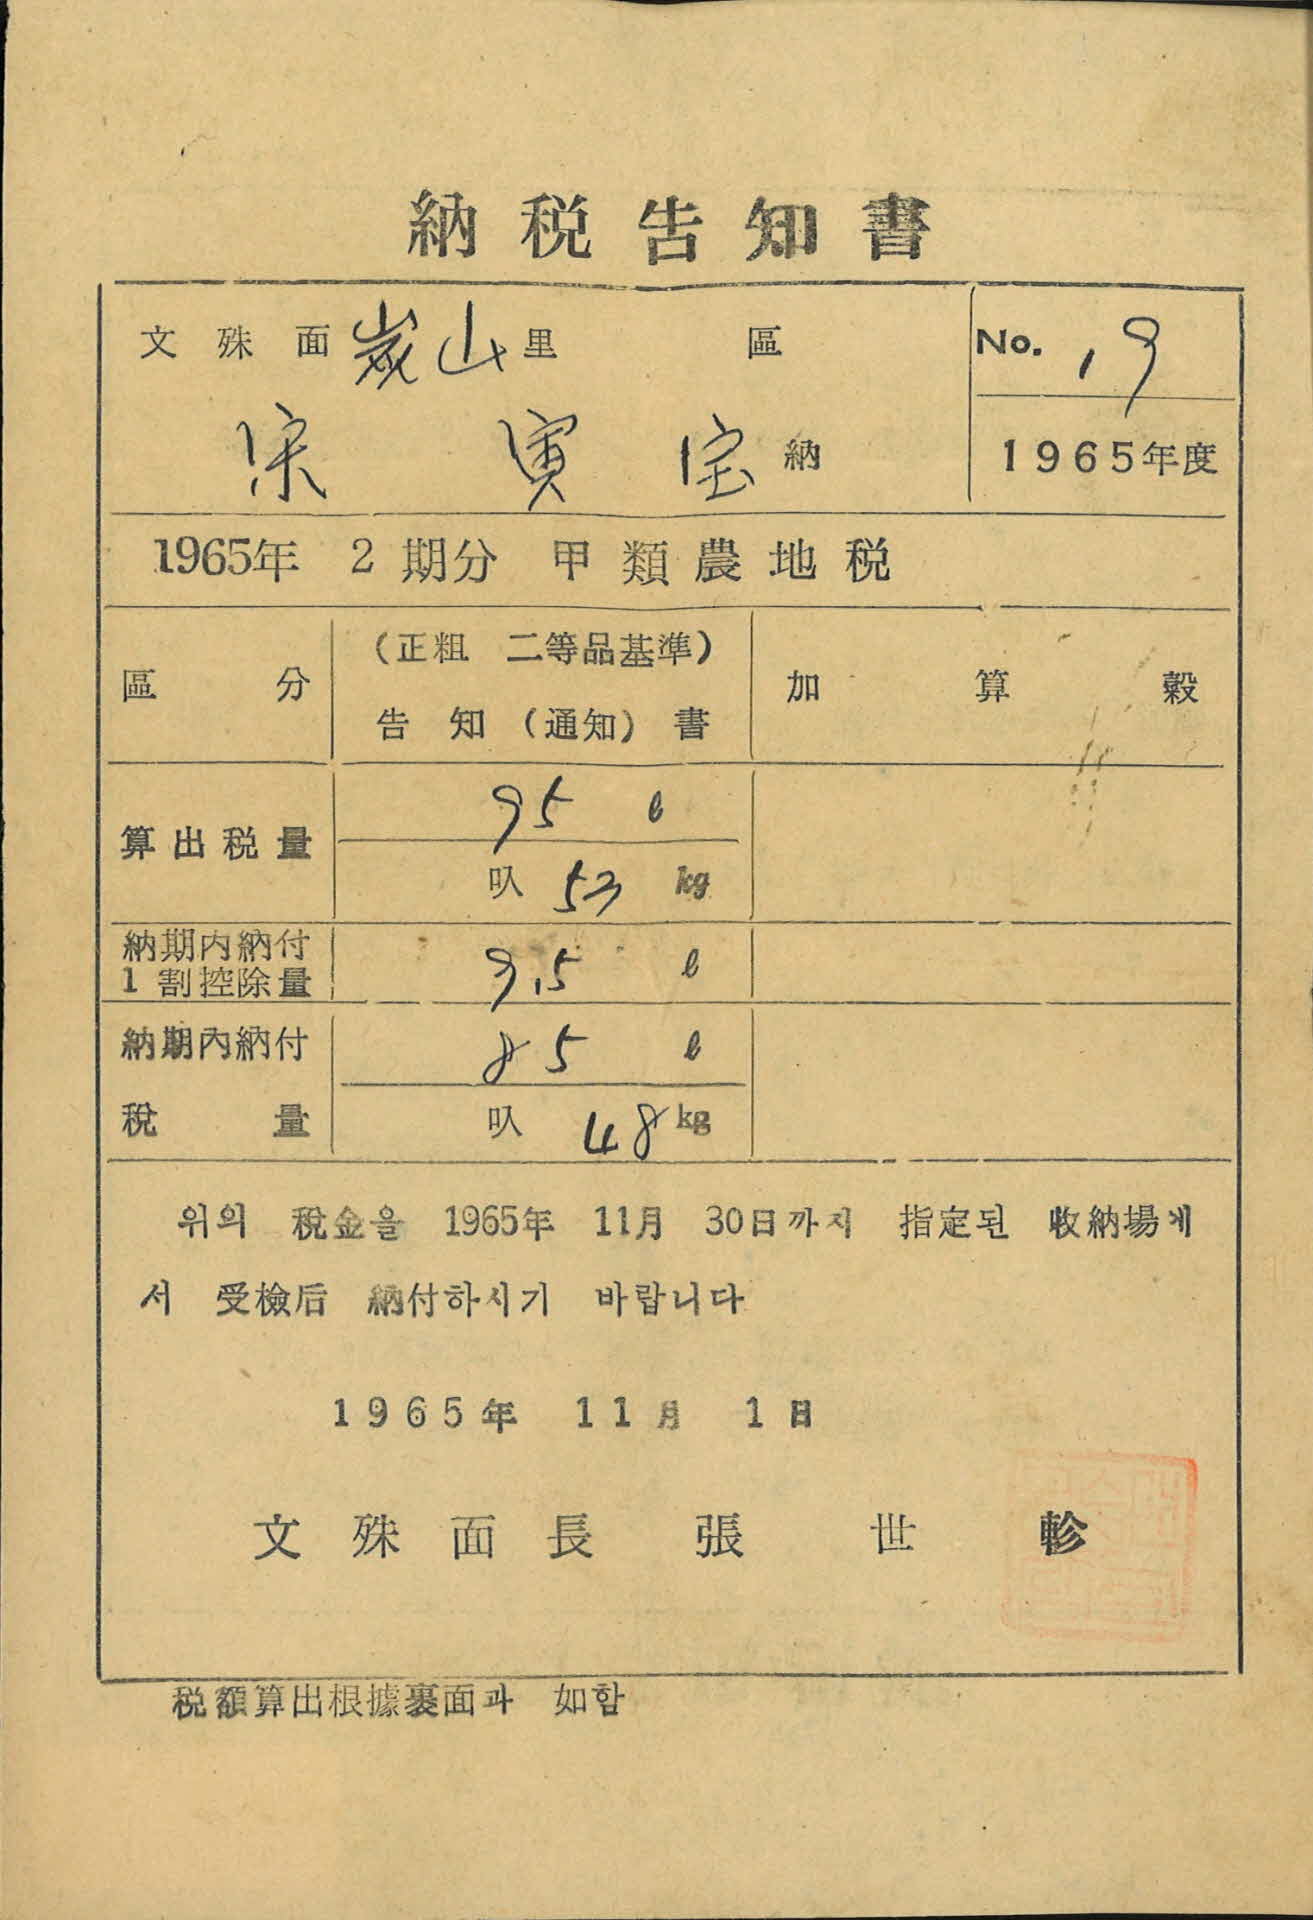 納稅告知書
文殊面 炭山里 區
No. 19
宋寅宝 納
1965年度
1965年 2期分 甲類農地稅
區分
(正粗 二等品基準)
告知(通知)書
加算穀
算出稅量
95 ℓ
叺 53 kg
納期內納付
1割控除量
9.5 ℓ
納期內納付
稅量
85 ℓ
叺 48 kg
위의 稅金을 1965年 11月 30日까지 指定된 收納場에
서 受檢后 納付하시기 바랍니다
1965年 11月 1日
文殊面長 張世軫
稅額算出根據裏面과 如함